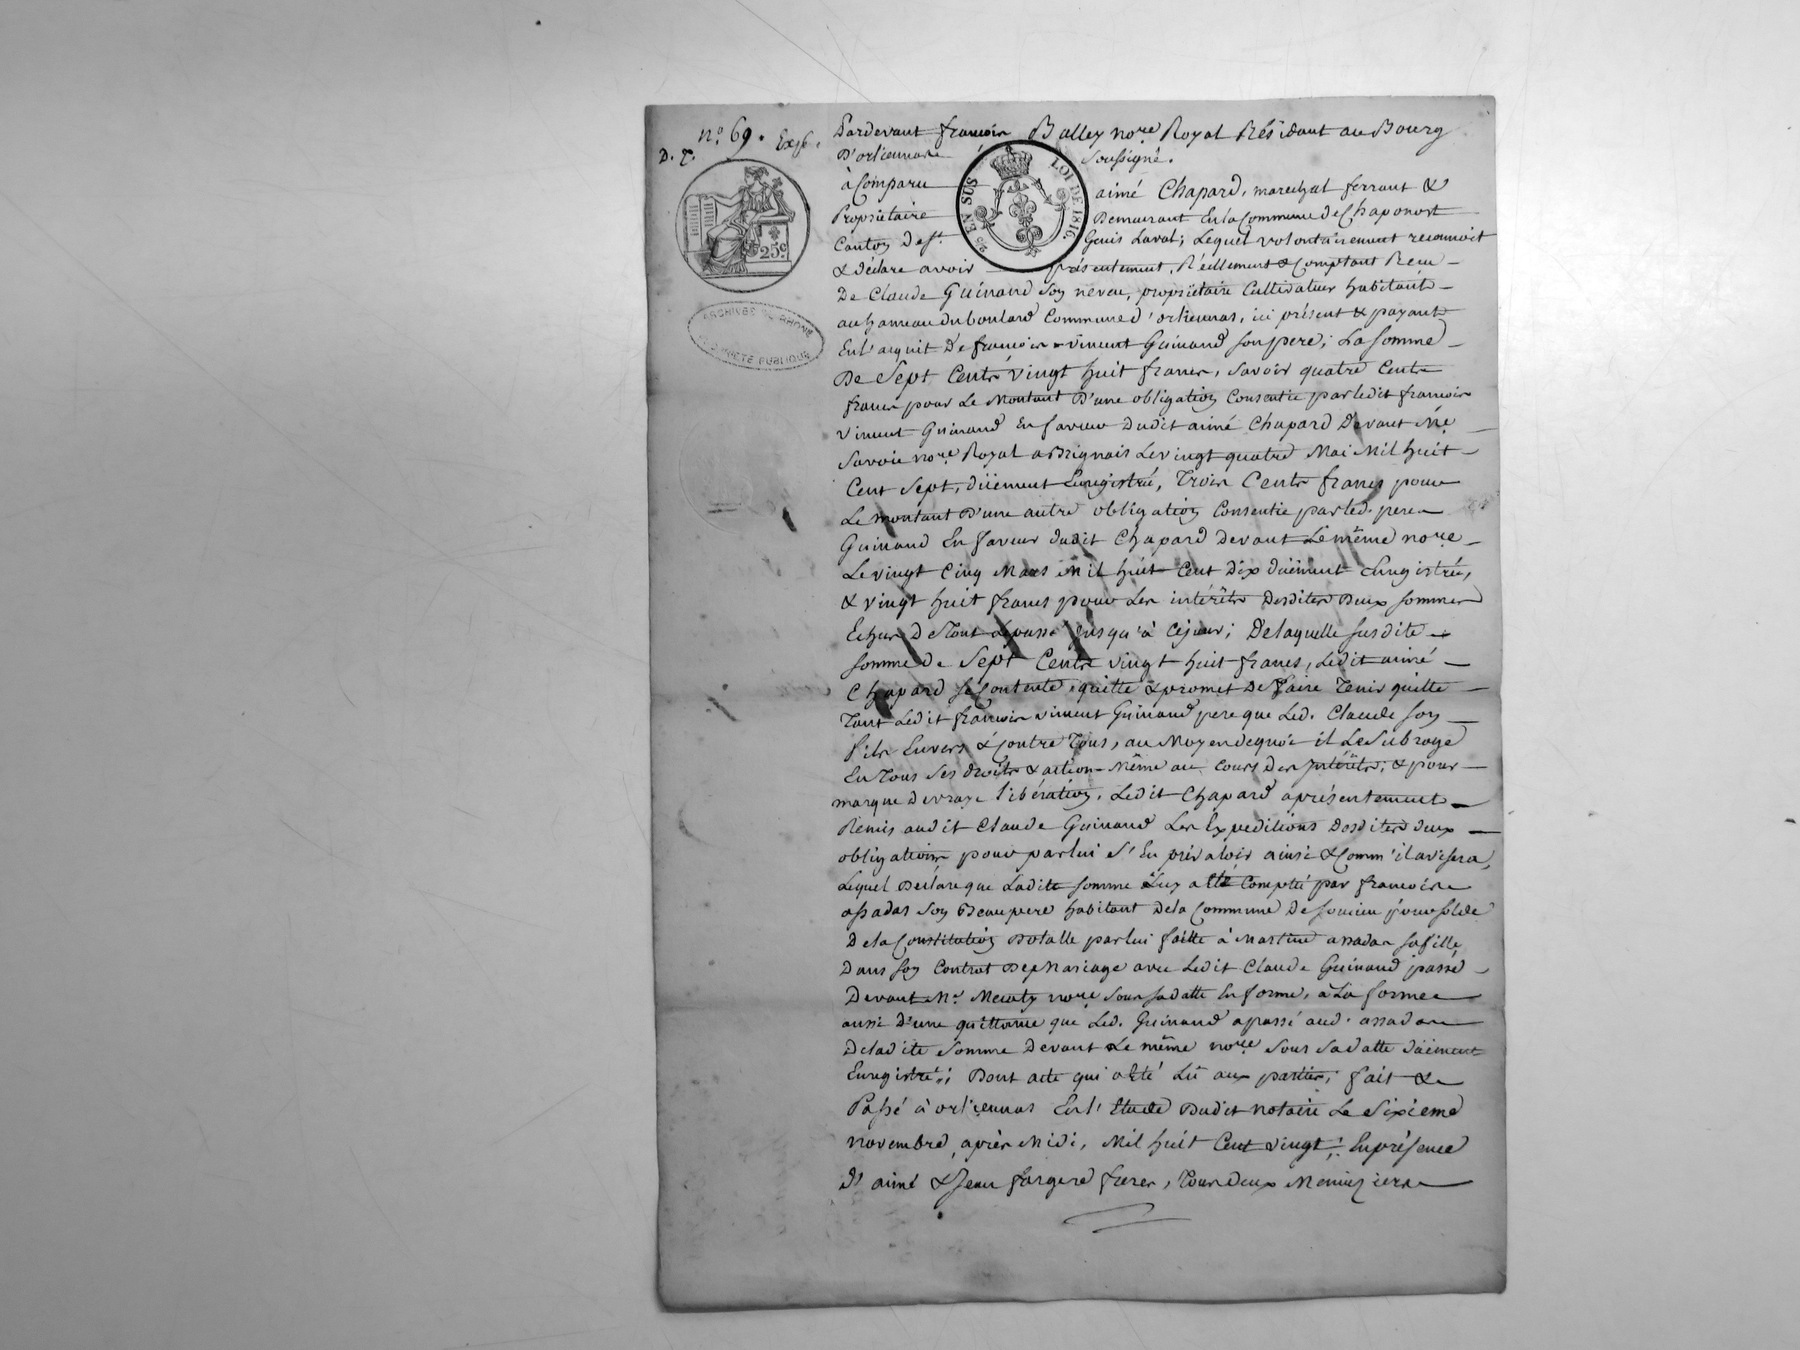 n.° 69. Exp.
D. T.
25 EN SUS LOI DE 1816.
25.c
ARCHIVES DU RHONE
PROPRIÉTÉ PUBLIQUE
Pardevant françois Balley no.re Royal Résidant au Bourg
D'orliennas soussigné.
à Comparu aimé Chapard, marechal ferrant &
Propriétaire Demeurant En la Commune de Chaponost
Canton de S.t Genis Laval; Lequel volontairement reconnoit
& déclare avoir présentement, Réellement & Comptant Recu
De Claude Guinand son neveu, propriétaire Cultivateur habitant
au hameau du boulard Commune d'orliennas, ici présent & payant
En l'acquit De françois vincent Guinand son pere; La somme
De Sept Cents vingt huit francs, Savoir quatre Cents
francs pour Le Montant D'une obligation Consentie par ledit francois
vincent Guinand En faveur Dudit aimé Chapard Devant Me
Savoie no.re Royal a Brignais Le vingt quatre Mai Mil huit
Cent Sept, düement Enregistrée, Trois Cents francs pour
Le montant D'une autre obligation Consentie par led. pere
Guinand En faveur dudit Chapard Devant Le même no.re
Le vingt Cinq Mars Mil huit Cent Dix düement Enregistrée,
& vingt huit francs pour Les intérêts Desdites Deux sommes
Echus De Tout Le passé jusqu'à Cejour; De laquelle susdite
somme de Sept Cents vingt huit francs, Ledit aimé
Chapard se Contente, quitte & promet De faire Tenir quitte
Tant Ledit françois vincent Guinand pere que Led. Claude son
fils Envers & Contre Tous, au Moyen dequoi il Le Subroge
En Tous Ses droits & action Même au Cours Des intérêts; & pour
marque De vraye libération, Ledit Chapard a présentement
Remis audit Claude Guinand Les Expeditions Desdites deux
obligations pour par lui S'En prévaloir ainsi & Comm'il avisera,
Lequel Déclare que Ladite somme Luy a Eté Comptée par francois
assadas son Beaupere habitant De la Commune De Soucieu pour solde
De la Constitution Dotalle par lui faitte à Martine assadas sa fille
Dans son Contrat De Mariage avec Ledit Claude Guinand passé
Devant M.e no.re Sous sa datte En forme, à La forme
aussi D'une quittance que Led. Guinand a passé aud. assadas
De ladite Somme Devant Le même no.re Sous Sa datte düement
Enregistrée; Dont acte qui a Eté Lû aux parties; fait &
Passé à orliennas En l'Etude Dudit notaire Le Sixieme
novembre, après Midi, Mil huit Cent vingt, En présence
D'aimé & Jean fargere freres, Tous Deux Menuiziers